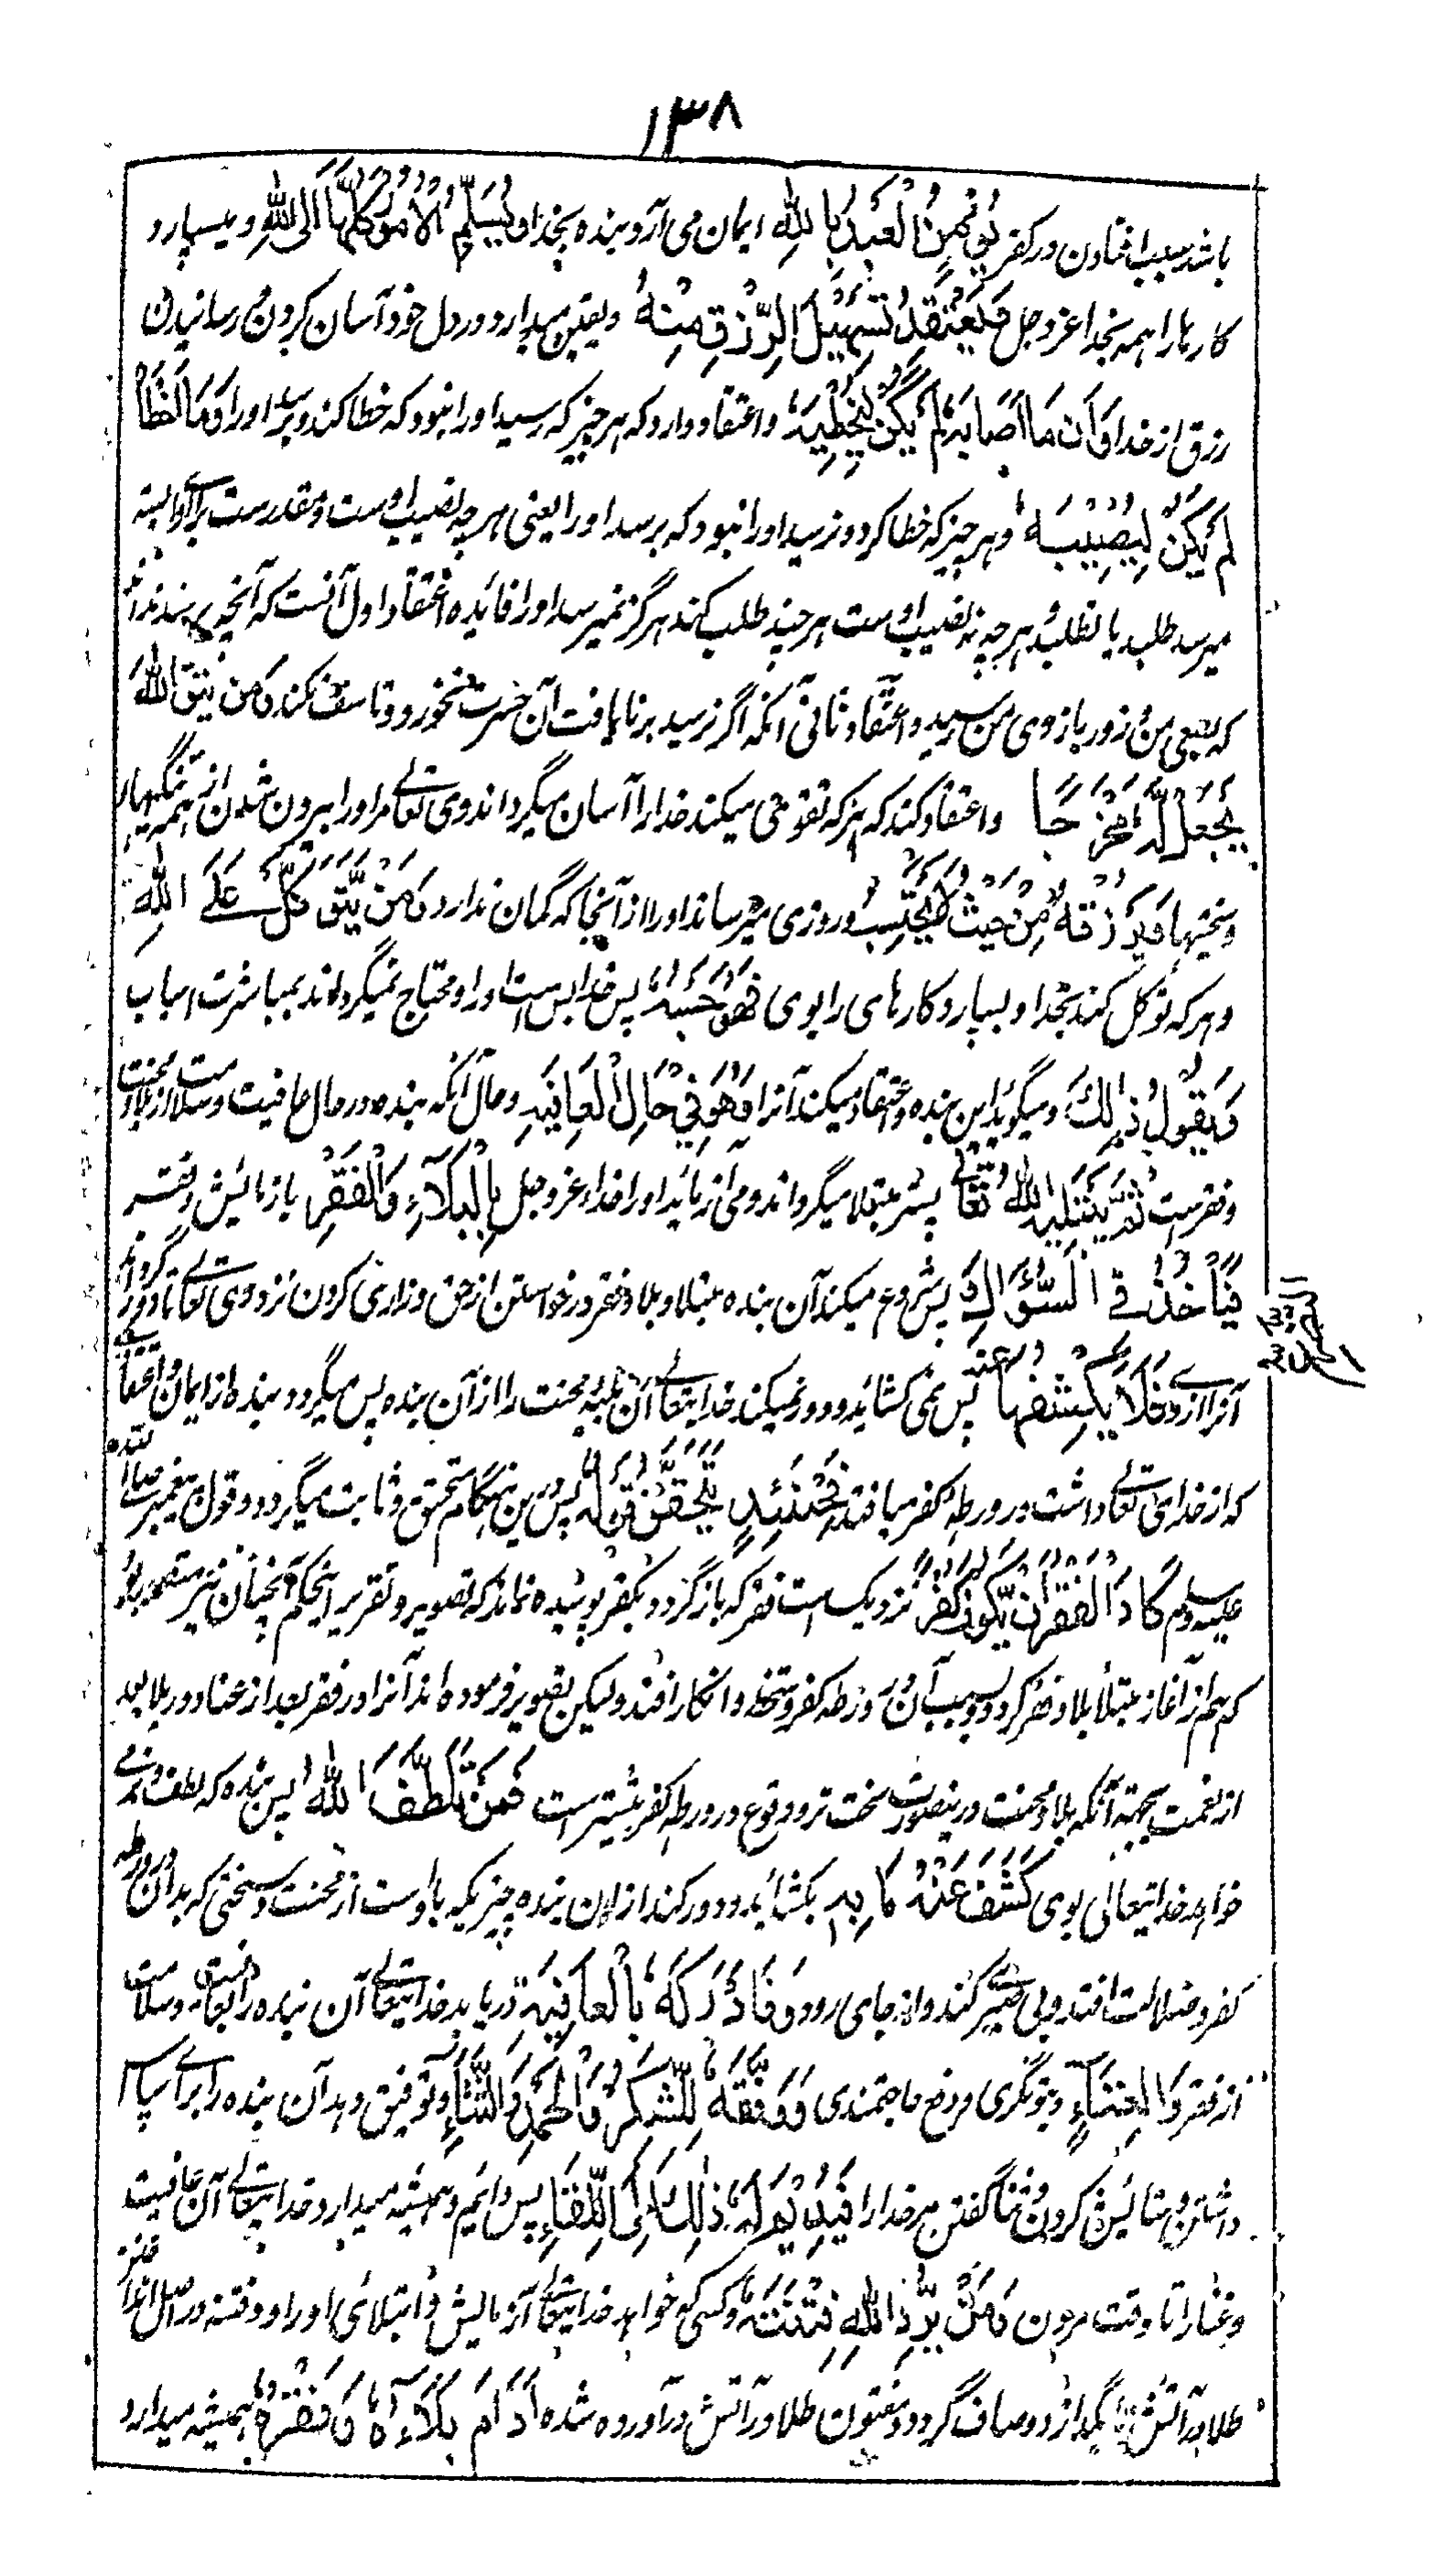 ۱۳۸
باشد سبب افتادن در کفر یُؤْمِنُ الْعَبْدُ بِاللهِ ایمان می آرد بنده بخدا وَیُسَلِّمُ الْاُمُوْرَ کُلَّهَا اِلَی اللهِ و میسپارد
کارها را همه بخدا عز و جل فَیَعْتَقِدُ تَسْهِیْلَ الرِّزْقِ مِنْهُ و یقین میدارد در دل خود آسان کردن و رسانیدن
رزق از خدا وَاَنَّ مَا اَصَابَهُ لَمْ یَکُنْ لِیُخْطِیَهُ و اعتقاد دارد که هر چیز که رسید او را نبود که خطا کند و نرسد او را وَمَا اَخْطَأَ
لَمْ یَکُنْ لِیُصِیْبَهُ و هر چیز که خطا کرد و نرسید او را نبود که برسد او را یعنی هر چه نصیب اوست و مقدرست برای او البته
میرسد طلبد یا نطلبد و هر چه نه نصیب اوست هر چند طلب کند هرگز نمیرسد او را فائده اعتقاد اول آنست که آنچه برسد نداند
که بسعی من و زور بازوی من رسید و اعتقاد ثانی آنکه اگر نرسید بر نایافت آن حسرت نخورد و تاسف نکند وَمَنْ یَتَّقِ اللهَ
یَجْعَلْ لَهُ مَخْرَجًا و اعتقاد کند که هر که تقوی میکند خدا را آسان میگرداند وی تعالے مر او را بیرون شدن از همه تنگیها
و سختیها وَیَرْزُقْهُ مِنْ حَیْثُ لَا یَحْتَسِبُ و روزی میرساند او را از آنجا که گمان ندارد وَمَنْ یَّتَوَکَّلْ عَلَی اللهِ
و هر که توکل کند بخدا و بسپارد کارهای را بوی فَهُوَ حَسْبُهُ پس خدا بس است او را و محتاج نمیگرداند بمباشرت اسباب
وَیَقُوْلُ ذٰلِكَ و میگوید این بنده و اعتقاد میکند آنرا وَهُوَ فِیْ حَالِ الْعَافِیَةِ و حال آنکه بنده در حال عافیت و سلامت از بلا و محنت
و فقرست ثُمَّ یَبْتَلِیْهِ اللهُ تَعَالٰی پستر مبتلا میگرداند و می آزماید او را خدا عز و جل بِالْبَلَآءِ وَالْفَقْرِ بازمایش و فقر
فَیَأْخُذُ فِی السُّؤَالِ پس شروع میکند آن بنده مبتلا و بلا و فقر در خواستن از حق و زاری کردن نزد وی تعالے تا دور گرداند
آنرا از وے فَلَا یَکْشِفُهَا عَنْهُ پس نمی کشاید و دور نمیکند خدایتعالے آن بلیه و محنت را از آن بنده پس میگردد بنده از ایمان و اعتقادے
که از خدای تعالے داشت و در ورطه کفر میافتد فَحِیْنَئِذٍ یَتَحَقَّقُ قَوْلُهُ پس درین هنگام متحقق و ثابت میگردد قول پیغمبر صلے الله
علیه وسلم کَادَ الْفَقْرُ اَنْ یَّکُوْنَ کُفْرًا نزدیک است فقر که باز گردد بکفر پوشیده نماند که تصویر و تقریر اینحکم آنچنان نیز متصور بود
که هم از آغاز مبتلا ببلا و فقر گردد و بسبب آن در ورطه کفر و سخط و انکار افتد ولیکن تصویر فرموده اند آنرا در فقر بعد از غنا و در بلا بعد
از نعمت بجهة آنکه بلا و محنت درینصورت سخت تر و وقوع در ورطه کفر بیشترست فَمَنْ تَلَطَّفَ اللهُ پس بنده که لطف و نرمے
خواهد خدایتعالی بوی کَشَفَ عَنْهُ مَا بِهِ بکشاید و دور کند ازان بنده چیزیکه باوست از محنت و سختی که بدان در ورطه
کفر و ضلالت افتد و بی صبرے کند و از جای رود وَاَدْرَکَهُ بِالْعَافِیَةِ دریابد خدایتعالے آن بنده را بعافیت و سلامت
از فقر وَالْغِنَاءِ و بتوانگری و رفع حاجتمندی وَوَفَّقَهُ لِلشُّکْرِ وَالْحَمْدِ وَالثَّنَاءِ و توفیق دهد آن بنده را براے سپاس
داشتن و ستائیش کردن و ثنا گفتن مر خدا را فَیُدِیْمُ لَهُ ذٰلِكَ اِلَی اللِّقَاءِ پس دائم و همیشه میدارد خدایتعالے آن عافیت
و غنا را تا وقت مردن وَمَنْ یُّرِدِ اللهُ فِتْنَتَهُ و کسی که خواهد خدایتعالے آزمایش و ابتلای او را و فتنه در اصل
طلا در آتش بگدازد و صاف گردد و مفتون طلا در آتش درآورده شده اَدَامَ بَلَآءَهُ وَفَقْرَهُ همیشه میدارد